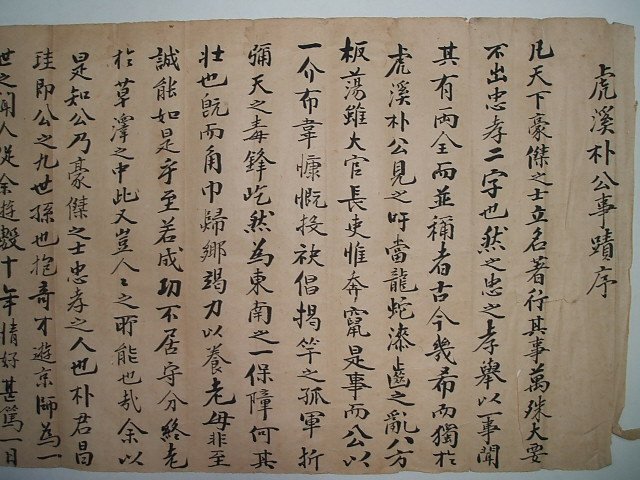 虎溪朴公事蹟序
凡天下豪傑之士立名著行其事萬殊大要
不出忠孝二字也然之忠之孝舉以一事聞
其有兩全而並稱者古今幾希而獨於
虎溪朴公見之吁當龍蛇漆齒之亂八方
板蕩雖大官長吏惟奔竄是事而公以
一介布韋慷慨投袂倡揭竿之孤軍折
彌天之毒鋒屹然為東南之一保障何其
壯也旣而角巾歸鄉竭力以養老母非至
誠能如是乎至若成功不居守分終老
於草澤之中此又豈人人之所能也哉余以
是知公乃豪傑之士忠孝之人也朴君昌
珪即公之九世孫也抱奇才遊京師為一
世之聞人從余遊數十年情好甚篤一日